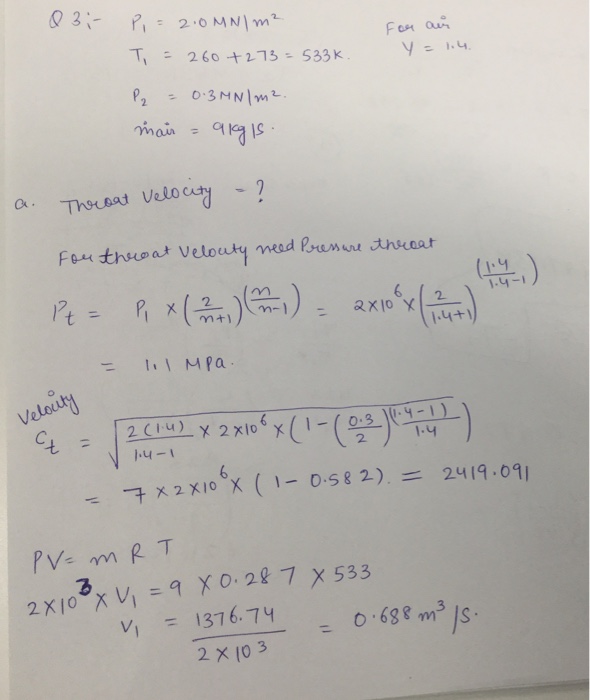 Q 3:- P₁ = 2.0 MN/m²
For air
T₁ = 260 + 273 = 533K.
γ = 1.4.
P₂ = 0.3 MN/m².
ṁair = 9 kg/s.
a. Throat Velocity = ?
For throat Velocity need Pressure throat
Pt = P₁ × (2/n+1)^(n/n-1) = 2×10⁶ × (2/1.4+1)^(1.4/1.4-1)
= 1.1 MPa.
Velocity
Ct = √(2(1.4)/1.4-1 × 2×10⁶ × (1-(0.3/2)^((1.4-1)/1.4)))
= 7 × 2×10⁶ × (1 - 0.582). = 2419.091
PV = m R T
2×10³ × V₁ = 9 × 0.287 × 533
V₁ = 1376.74 / 2×10³ = 0.688 m³/s.